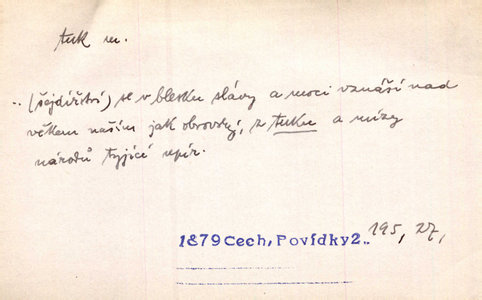 tuk m.
.. (šejdířství) se v blesku slávy a moci vznáší nad
věkem naším jak obrovský, z tuku a mízy
národů tyjící upír.
1879 Cech, Povídky 2.. 195, 27,